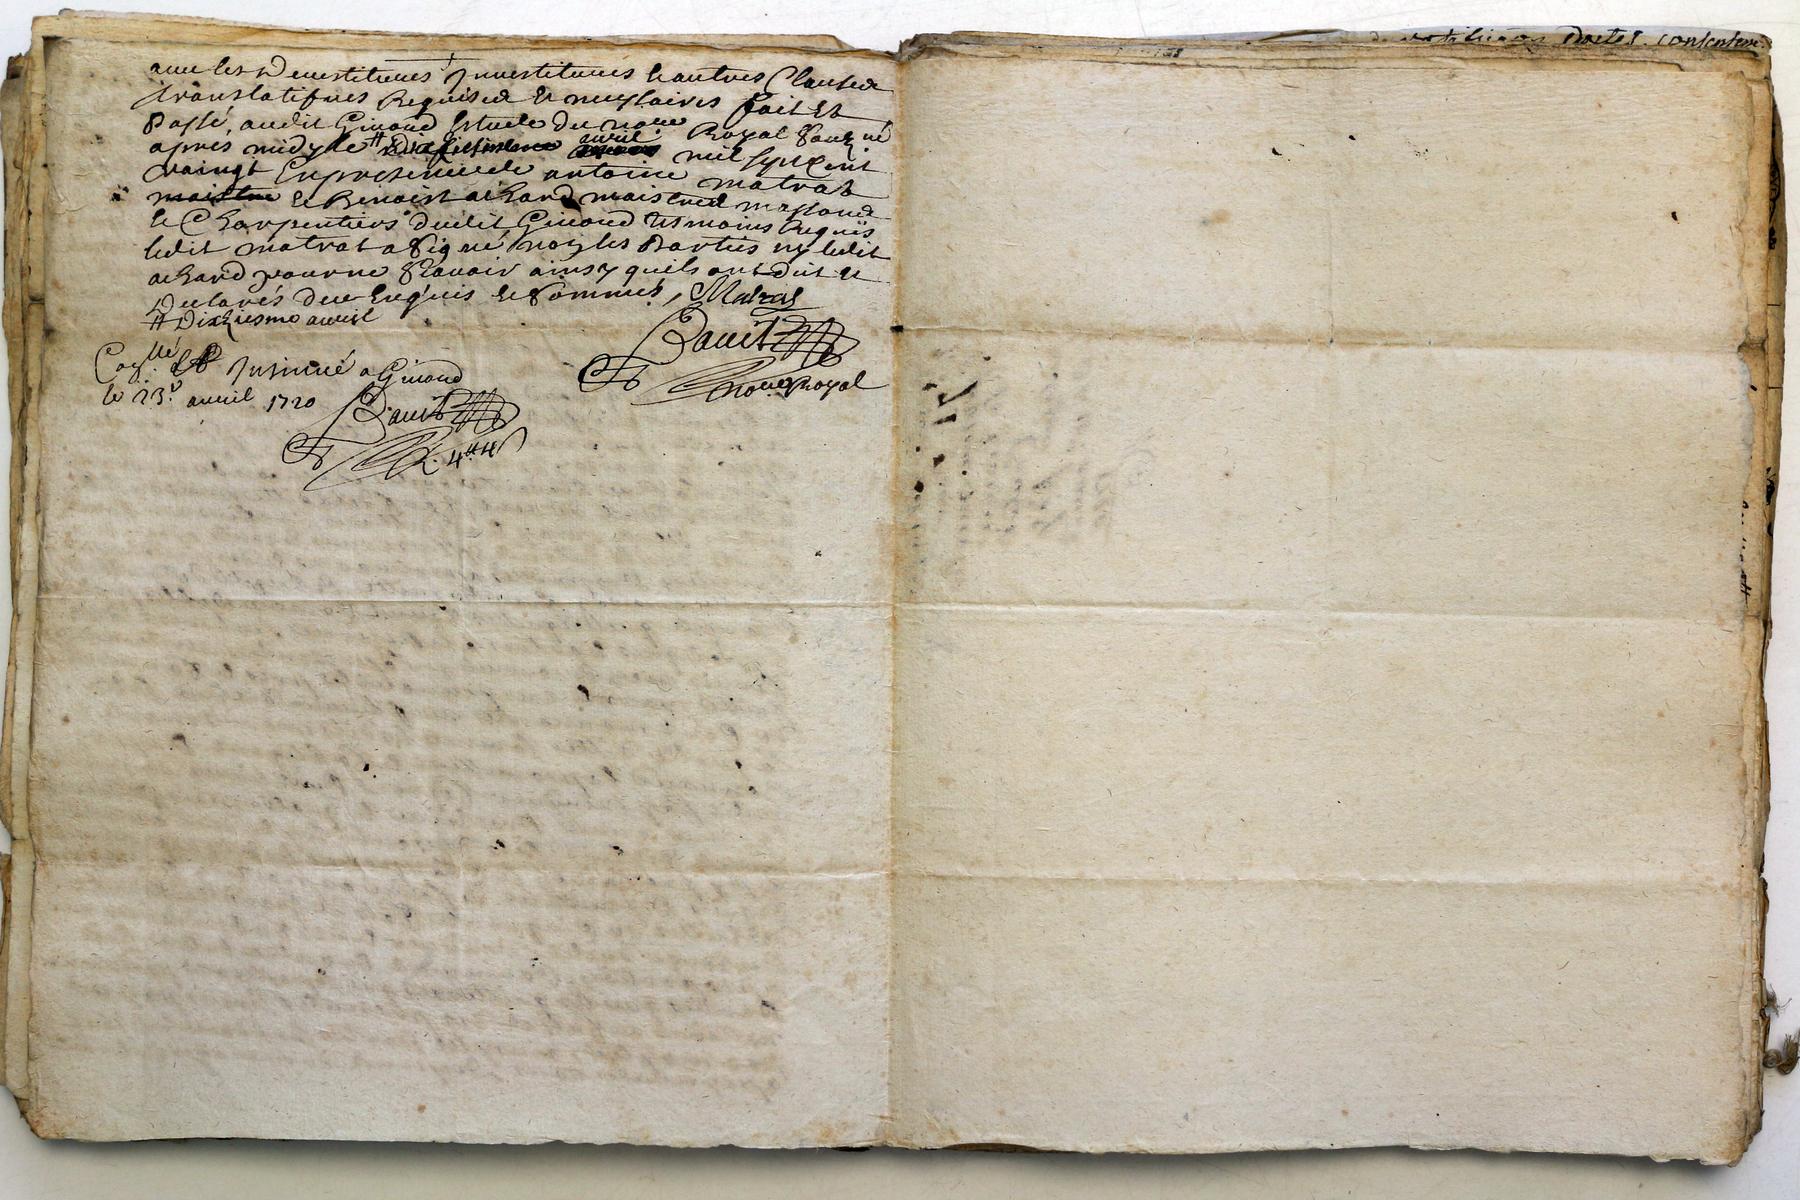 avec les Devestitures Jnvestitures & autres Clauses
translatifves Requises & necessaires fait &
Passé, audit Givord Estude du no.re Royal soubz.né
apres midy le # avril mil sept Cent
vaingt En presence de antoine matrat
maistre & Benoist achard maistres massons
& Charpentiers dudit Givord tesmoins Requis
ledit matrat a signé, non les Parties ny ledit
achard pour ne sçavoir ainsy quils ont dit &
Declarés de ce Enquis & sommés, Matrat
# Dixhiesme avvril
Bavit
no.re Royal
Con.llé Et Jnsinué a Givord
le 23.e avvril 1720
Bavit
R. 4# 4s
Dactes. consentem